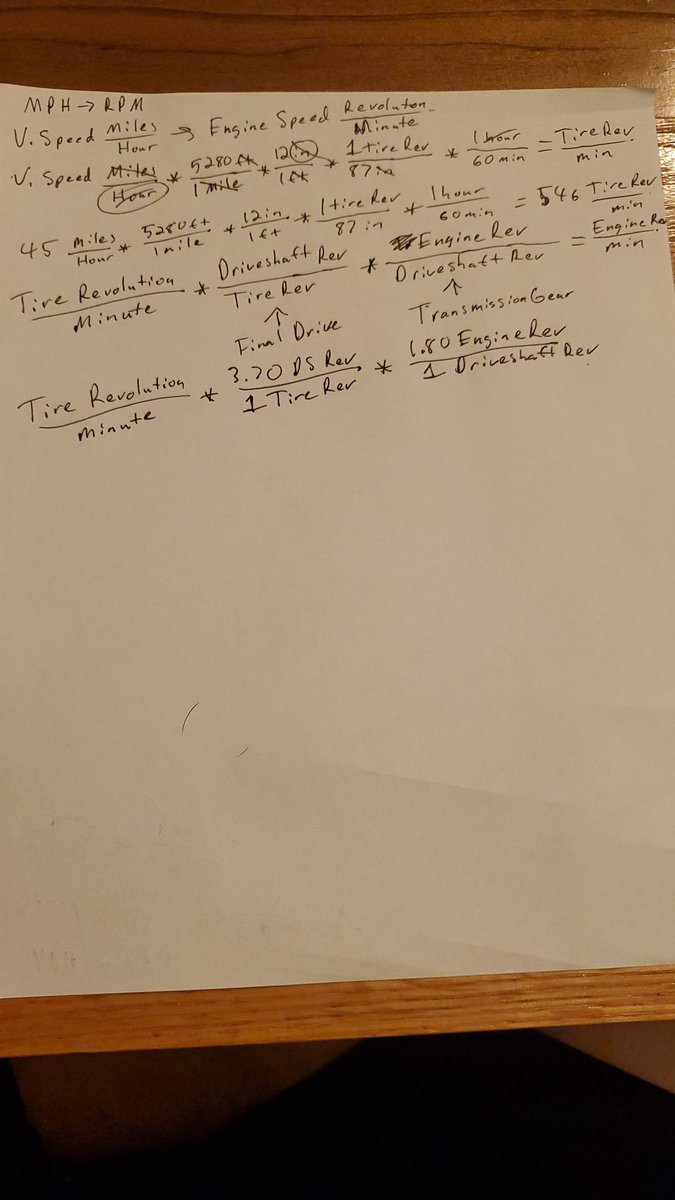 MPH → RPM
V. Speed Miles/Hour → Engine Speed Revoluton/Minute
V. Speed Miles/Hour * 5280 ft/1 mile * 12 in/1 ft * 1 tire Rev/87 in * 1 hour/60 min = Tire Rev/min
45 miles/Hour * 5280 ft/1 mile * 12 in/1 ft * 1 tire Rev/87 in * 1 hour/60 min = 546 Tire Rev/min
Tire Revolution/Minute * Driveshaft Rev/Tire Rev * Engine Rev/Driveshaft Rev = Engine Rev/min
↑ ↑
Final Drive Transmission Gear
Tire Revolution/minute * 3.70 DS Rev/1 Tire Rev * 1.80 Engine Rev/1 Driveshaft Rev